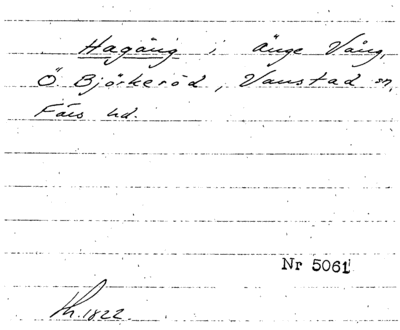 Hagäng i änge Vång,
Ö Björkeröd, Vanstad sn,
Färs hd.
Nr 5061
1822.